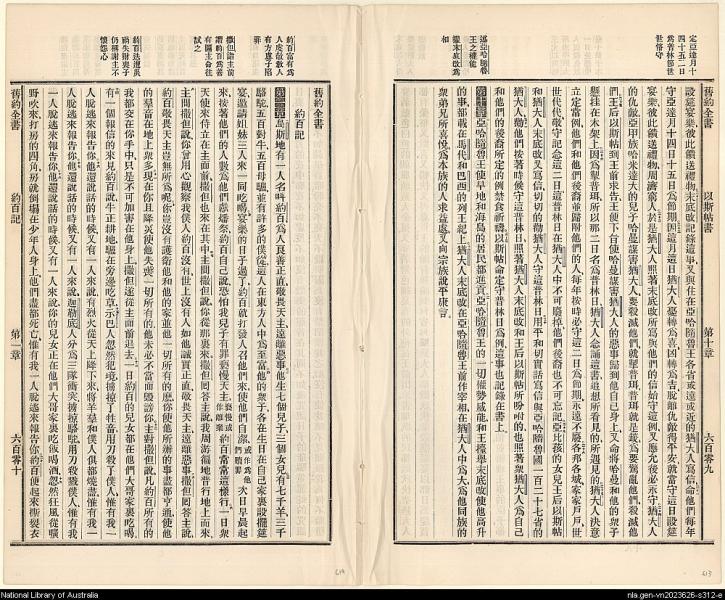 定亞達月十
四十五二日
為普林節世
世恪守
述亞哈隨魯
王之權能
並末底改為
相
舊約全書
以斯帖書
第十章
六百零九
設筵宴樂彼此餽送禮物末底改記錄這事又與住在亞哈隨魯王各省或遠或近的猶大人寫信命他們每年
守亞達月十四日十五日為節期因這月這日猶大人憂轉為喜因轉為吉脫離仇敵得平安就當守這日設筵
宴樂彼此餽送禮物周濟窮人於是猶大人照著末底改所寫與他們的信始守這例又應允後必永守猶大人
的仇敵亞甲族哈米達大的兒子哈曼謀害猶大人要殺滅他們就掣普珥普珥就是籤為要驚亂他們殺滅他
們王后以斯帖到王前求告王便下旨使哈曼謀害猶大人的惡事歸到他自己身上又命將哈曼和他的眾子
懸挂在木架上因為掣普珥所以那二日名為普林日猶大人念誦這書追想所看見的所遇見的猶大人決意
立定常例他們和他們後裔並歸附他們的人每年按時必守這二日為節期永遠不廢各邦各城家家戶戶世
世代代禮守記念這二日這普林日在猶大人中不可廢掉他們後裔也不可忘記亞比孩的女兒王后以斯帖
和猶大人末底改又寫信切切的勸猶大人守這普林日用平和切實話寫信與亞哈隨魯國一百二十七省的
猶大人勸他們按著時候守這普林日照著猶大人末底改和王后以斯帖所吩咐的也照著眾猶大人為自己
和他們的後裔所定的例禁食祈禱以斯帖命定守普林日為例這事也記錄在書上
第十章亞哈隨魯王使旱地和海島的居民都進貢亞哈隨魯王的一切權勢威能和王擡舉末底改使他高升
的事都載在瑪代和巴西的列王紀上猶大人末底改在亞哈隨魯王前作宰相在猶大人中為大為他同族的
眾弟兄所喜悅為本族的人求益處又向宗族說平康言
約百富有為
人虔敬教人
有方慮子陷
罪
撒但詣主前
謂約百為善
有圖主命往
試之
約百迭遇災
禍失財喪子
仍稱謝主不
懷怨心
舊約全書
約百記
第一章
六百零十
舊約全書
約百記
第一章烏斯地有一人名呌約百為人良善正直敬畏天主遠離惡事他生七個兒子三個女兒有七千羊三千
駱駝五百對牛五百母驢並有許多的僕從這人在東方人中為至富他的眾子各在生日在自己家裏設擺筵
宴邀請姐妹三人來一同吃喝宴樂的日子過了約百就打發人召他們來使他們自潔
大日早晨起
來按著他們的人數為他們獻燔祭約百自己說恐怕我兒子有罪褻慢天主
約百常常這樣行一日眾
天使來侍立在主面前撒但也來在其中主問撒但說你從那裏來撒但囘答主說我周游徧地普行地上而來
主問撒但說你曾用心觀察我僕人約百沒有世上沒有人如他誠實正直敬畏天主遠離惡事撒但囘答主說
約百敬畏天主豈無所為呢你豈沒有護衛他和他的家並他一切所有的麼你使他所辦的事盡都亨通使他
的羣畜在地上眾多現在你且降災使他失喪一切所有的他未必不當面毀謗你主對撒但說凡約百所有的
我都交在你手中只是不可加害在他身上撒但遂從主面前退去一日約百的兒女都在他們大哥家裏吃喝
有一個報信的來見約百說牛正耕地驢在旁邊吃草示巴人忽然犯境擄掠了牲畜用刀殺了僕人惟有我一
人脫逃來報告你他還說話的時候又有一人來說有烈火從天上降下來將羊羣和僕人俱都燒盡惟有我一
人脫逃來報告你他還說話的時候又有一人來說迦勒底人分為三隊衝突擄掠駱駝用刀殺戮僕人惟有我
一人脫逃來報告你他還說話的時候又有一人來說你的兒女正在他們大哥家裏吃飯喝酒忽然狂風從曠
野吹來打房的四角房就倒塌在少年人身上他們盡都死亡惟有我一人脫逃來報告你約百便起來撕裂衣
614
613
National Library of Australia
nla.gen-vn2023626-s312-e